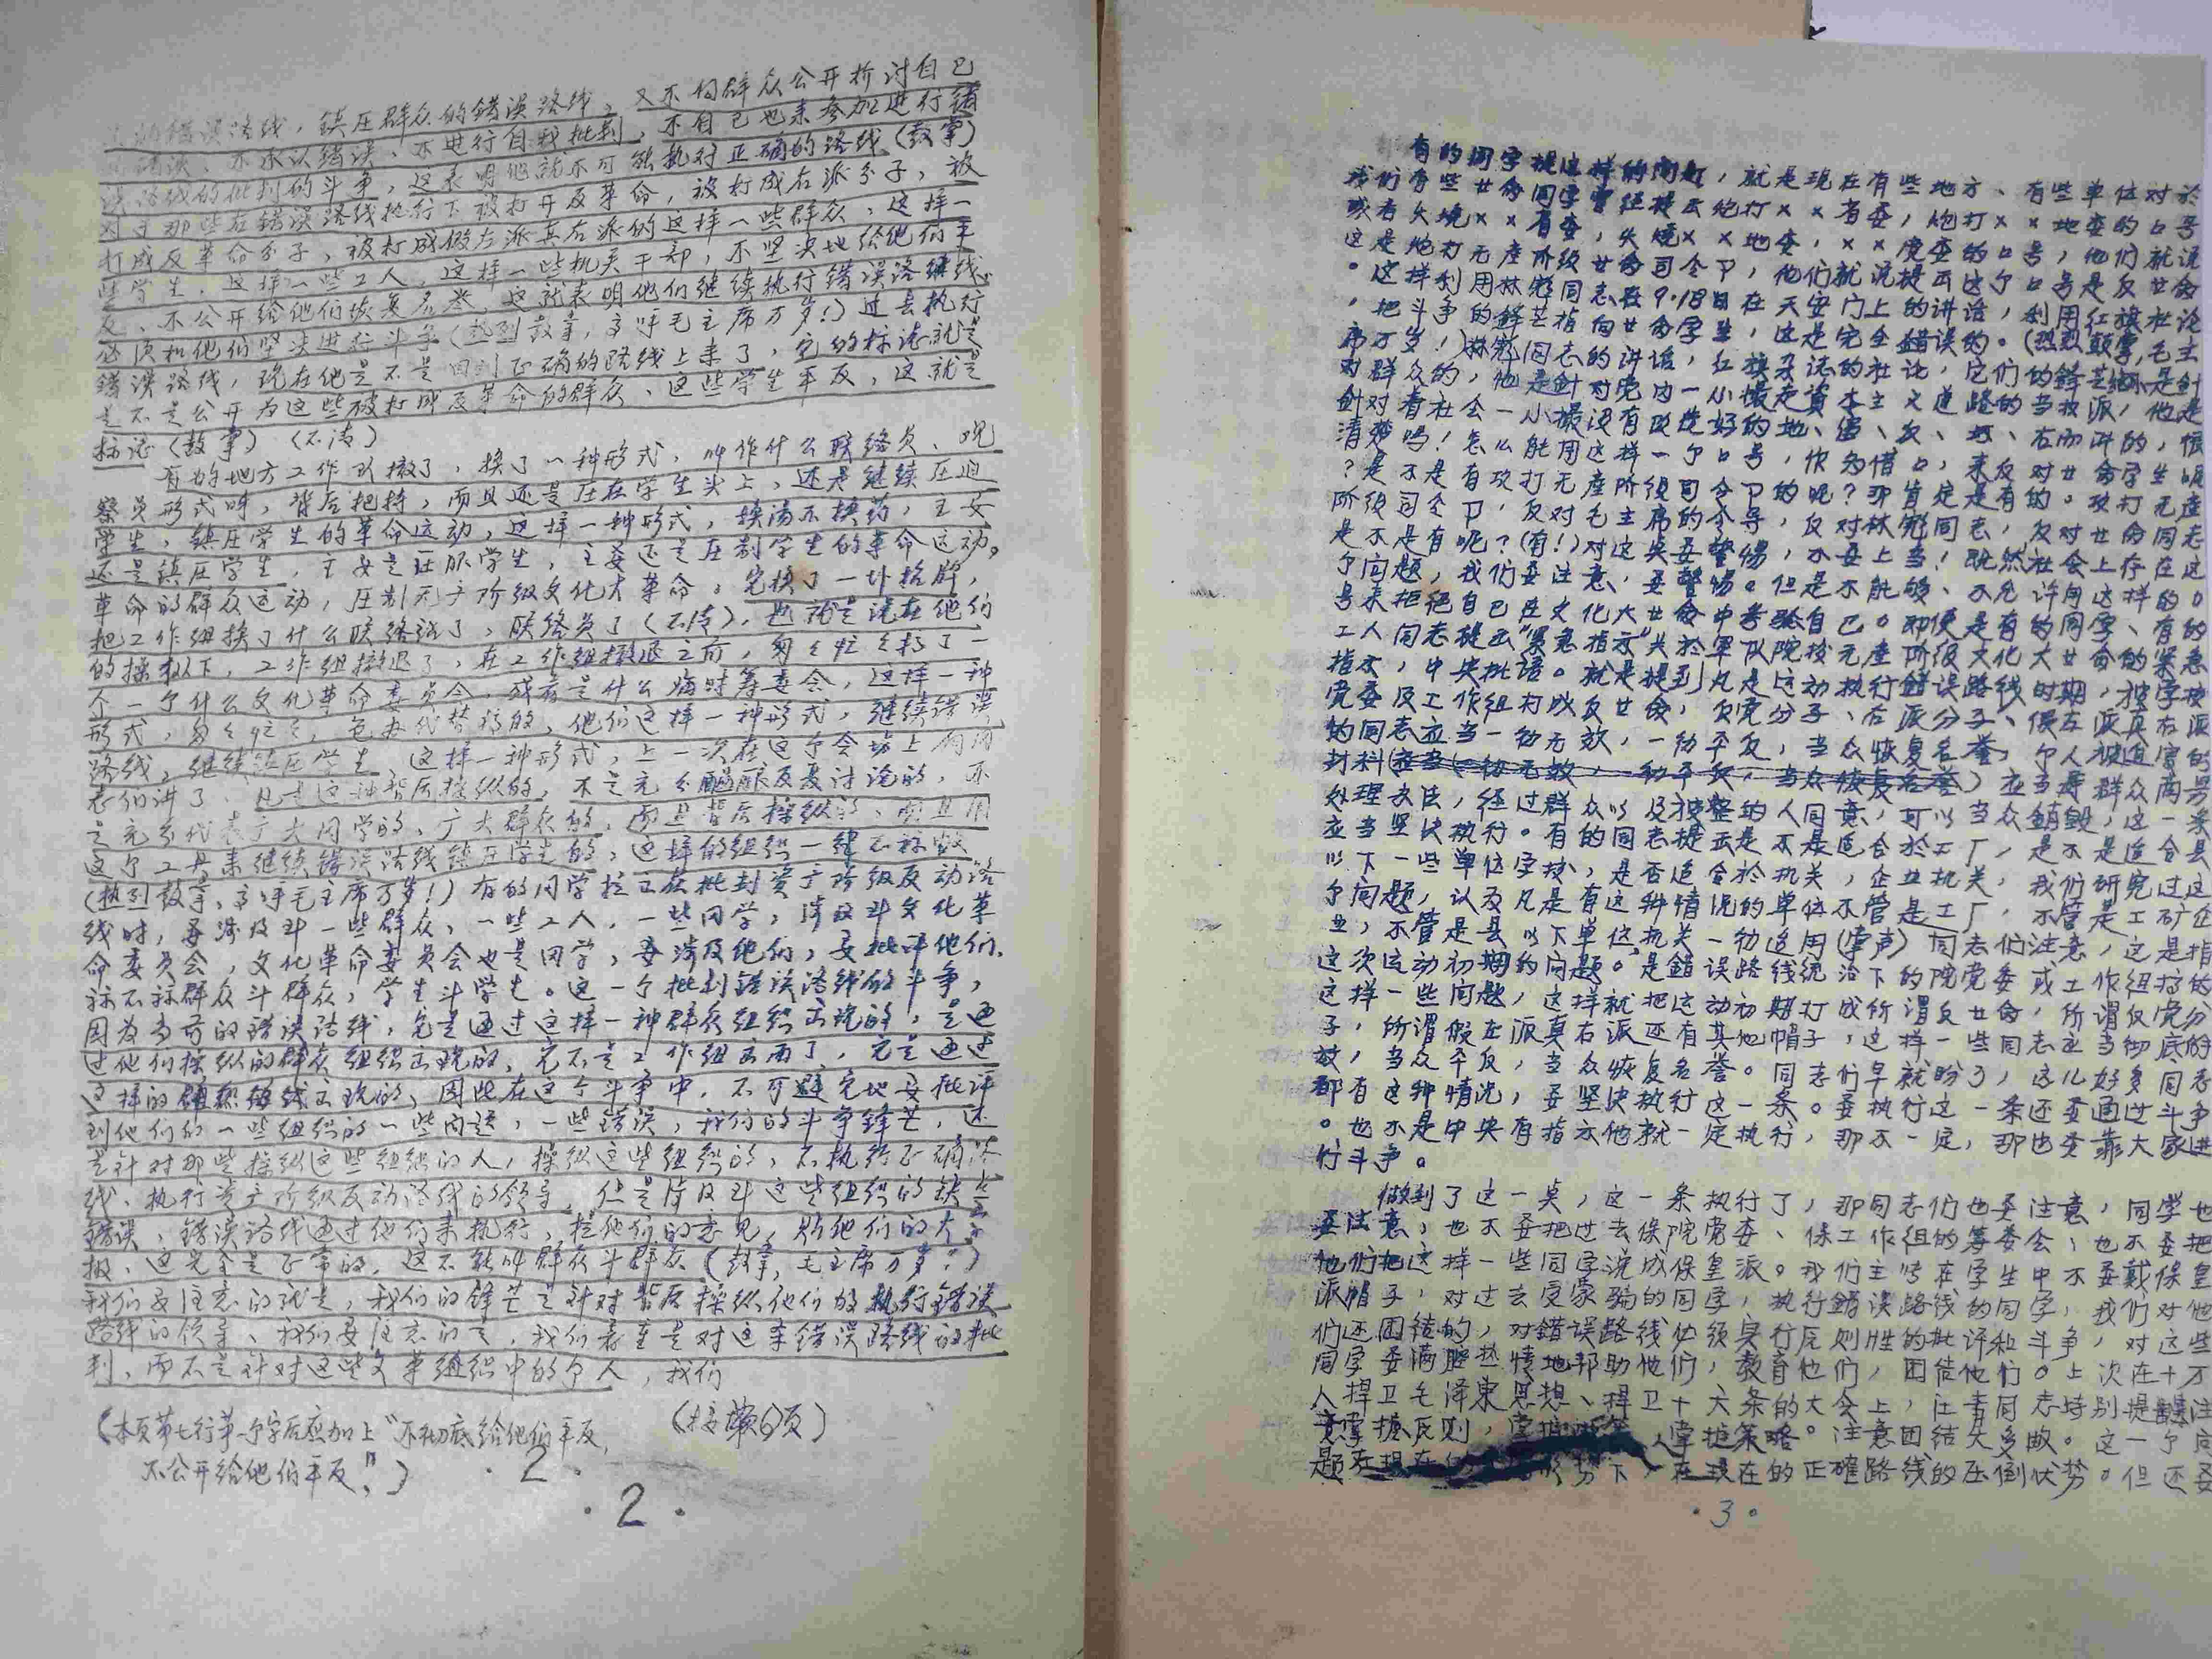 的错误路线，鎮压群众的错误路线，又不向群众公开检讨自己
错误、不承认错误、不进行自我批判，不自己也来参加进行错
误路线的批判的斗争，这表明他就不可能执行正确的路线（鼓掌）
对于那些在错误路线执行下被打开反革命，被打成右派分子，被
打成反革命分子，被打成假左派真右派的这样一些群众、这样一
些学生，这样一些工人，这样一些机关干部，不坚决地给他们平
反、不公开给他们恢复名誉，这就表明他们继续执行错误路线，
必须和他们坚决进行斗争（热烈鼓掌，高呼毛主席万岁！）过去执行
错误路线，现在他是不是回到正确的路线上来了，它的标志就是
是不是公开为这些被打成反革命的群众、这些学生平反，这就是
标志（鼓掌）（不清）
有的地方工作队撤了，换了一种形式，叫作什么联络员、观
察员形式呀，背后把持，而且还是压在学生头上，还是继续压迫
学生，鎮压学生的革命运动，这样一种形式，换汤不换药，主要
还是鎮压学生，主要是压服学生，主要还是压制学生的革命运动，
革命的群众运动，压制无产阶级文化大革命。它换了一卦招牌，
把工作组换了什么联络站了，联络员了（不清），也就是说在他们
的操纵下，工作组撤退了，在工作组撤退之前，匆々忙々搞了一
个一个什么文化革命委员会，或者是什么临时筹委会，这样一种
形式，匆々忙々，包办代替搞的，他们这样一种形式，继续错误
路线，继续鎮压学生，这样一种形式，上一次在这个会场上向同
志们讲了，凡是这种背后操纵的，不是充分醞釀反复讨论的，不
是充分代表广大同学的、广大群众的，而是背后操纵的、而且用
这个工具来继续错误路线鎮压学生的，这样的组织一律不称职
（热烈鼓掌，高呼毛主席万岁！）有的同学提出在批判资产阶级反动路
线时，要涉及到一些群众，一些工人，一些同学，涉及到文化革
命委员会，文化革命委员会也是同学，要涉及他们，要批评他们，
称不称群众斗群众，学生斗学生。这一个批判错误路线的斗争，
因为当前的错误路线，它是通过这样一种群众组织出现的，是通
过他们操纵的群众组织出现的，它不是工作组出面了，它是通过
这样的组织出现的，因此在这个斗争中，不可避免地要批评
到他们的一些组织的一些问题，一些错误，我们的斗争锋芒，还
是针对那些操纵这些组织的人，操纵这些组织的，不执行正确路
线、执行资产阶级反动路线的领导，但是涉及到这些组织的缺点
错误、错误路线通过他们来执行，提他们的意见，贴他们的大字
报、这完全是正常的，这不能叫群众斗群众（鼓掌，毛主席万岁！）
我们要注意的就是，我们的锋芒是针对背后操纵他们的执行错误
路线的领导、我们要注意的是，我们着重是对这条错误路线的批
判，而不是针对这些文革组织中的个人，我们
（本页第七行第一个字后应加上“不彻底给他们平反，
不公开给他们平反”）
（接第6页）
·2·
·2·
有的同学提这样的问题，就是现在有些地方、有些单位对於
我们有些廿命同学曾经提出炮打××省委，炮打××地委的口号
或者火烧××省委，火烧××地委，××度委的口号，他们就说
这是炮打无产阶级廿命司令卩，他们就说提出这个口号是反廿命
。这样利用林彪同志在9·18日在天安门上的讲话，利用红旗社论
，把斗争的鋒芒指向廿命学生，这是完全錯误的。（热烈鼓掌，毛主
席万岁！）林彪同志的讲话，红旗杂志的社论，它们的鋒芒不是針
对群众的，他是針对党内一小撮走資本主义道路的当权派，他是
針对着社会一小撮没有改造好的地、富、反、坏、右而讲的，很
清楚吗！怎么能用这样一个口号，作为借口，来反对廿命学生呢
？是不是有攻打无產阶级司令卩的呢？那肯定是有的。攻打无產
阶级司令卩，反对毛主席的令导，反对林彪同志，反对廿命同志
是不是有呢？（有！）对这矣要警惕，不要上当！既然社会上存在这
个问题，我们要注意，要警惕。但是不能够、不允许用这样的口
号来拒绝自己在文化大廿命中考驗自己。即使是有的同学、有的
工人同志提出“紧急指示”关於軍队院校无產阶级文化大廿命的紧急
指示，中央批语。就是提到凡是运动执行錯误路线时期，被学校
党委及工作组打成反廿命，反党分子、右派分子、假左派真右派
的同志应当一律无效，一律平反，当众恢复名誉，个人被迫害的
材料（应当一律无效，一律平反，当众恢复名誉）应当与群众商另
处理办法，经过群众以及被整的人同意，可以当众銷毁，这一条
应当坚决执行。有的同志提出是不是适合於工厂，是不是适合县
以下一些单位学校，是否适合於机关，企业机关，我们研究过这
个问题，认及凡是有这种情况的单位不管是工厂，不管是工矿企
业，不管是县以下单位，机关一律适用（掌声）同志们注意，这是指
这次运动初期的问题。是錯误路线统治下的院党委或工作组搞的
这样一些问题，这样就把运动初期打成所谓反廿命，所谓反党分
子，所谓假左派真右派还有其他帽子，这样一些同志应当彻底的
放，当众平反，当众恢复名誉。同志们早就盼了，这儿好多同志
都有这种情况，要坚决执行这一条。要执行这一条还要通过斗争
。也不是中央有指示他就一定执行，那不一定，那也要靠大家进
行斗争。
做到了这一矣，这一条执行了，那同志们也要注意，同学也
要注意，也不要把过去保院党委、保工作组的筹委会，也不要把
他们把这样一些同学说成保皇派。我们主张在学生中不要戴保皇
派帽子，对过去受蒙骗的同学，执行錯误路线的同学，我们对他
们还团结的，对錯误路线必须实行原则性的批评和斗争，对这些
同学要满腔热情地邦助他们，教育他们，团结他们。上次在十万
人捍卫毛泽東思想、捍卫十六条的大会上，江青同志特别提醒注
意掌握原则，掌握政策，掌握策略。注意团结大多数。这一个问
题在现在的形势下，在现在的正確路线的压倒优势。但还要
·3·